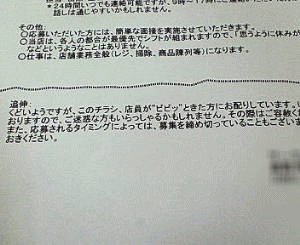 *24時間いつでも連絡可能ですが、9時~17時にご連絡いただ
話しは通じやすいかもしれません。
その他:
○応募いただいた方には、簡単な面接を実施させていただきます。
○当店は、各人の都合が最優先でシフトが組まれますので、「思うように休みが
などというようなことはありません。
○仕事は、店舗業務全般(レジ、掃除、商品陳列等)になります。
追伸:
くどいようですが、このチラシ、店員が"ビビッ"ときた方にお配りしています。
おりますので、ご迷惑な方もいらっしゃるかもしれません。その際はご容赦く
また、応募されるタイミングによっては、募集を締め切っていることもござい
おきください。